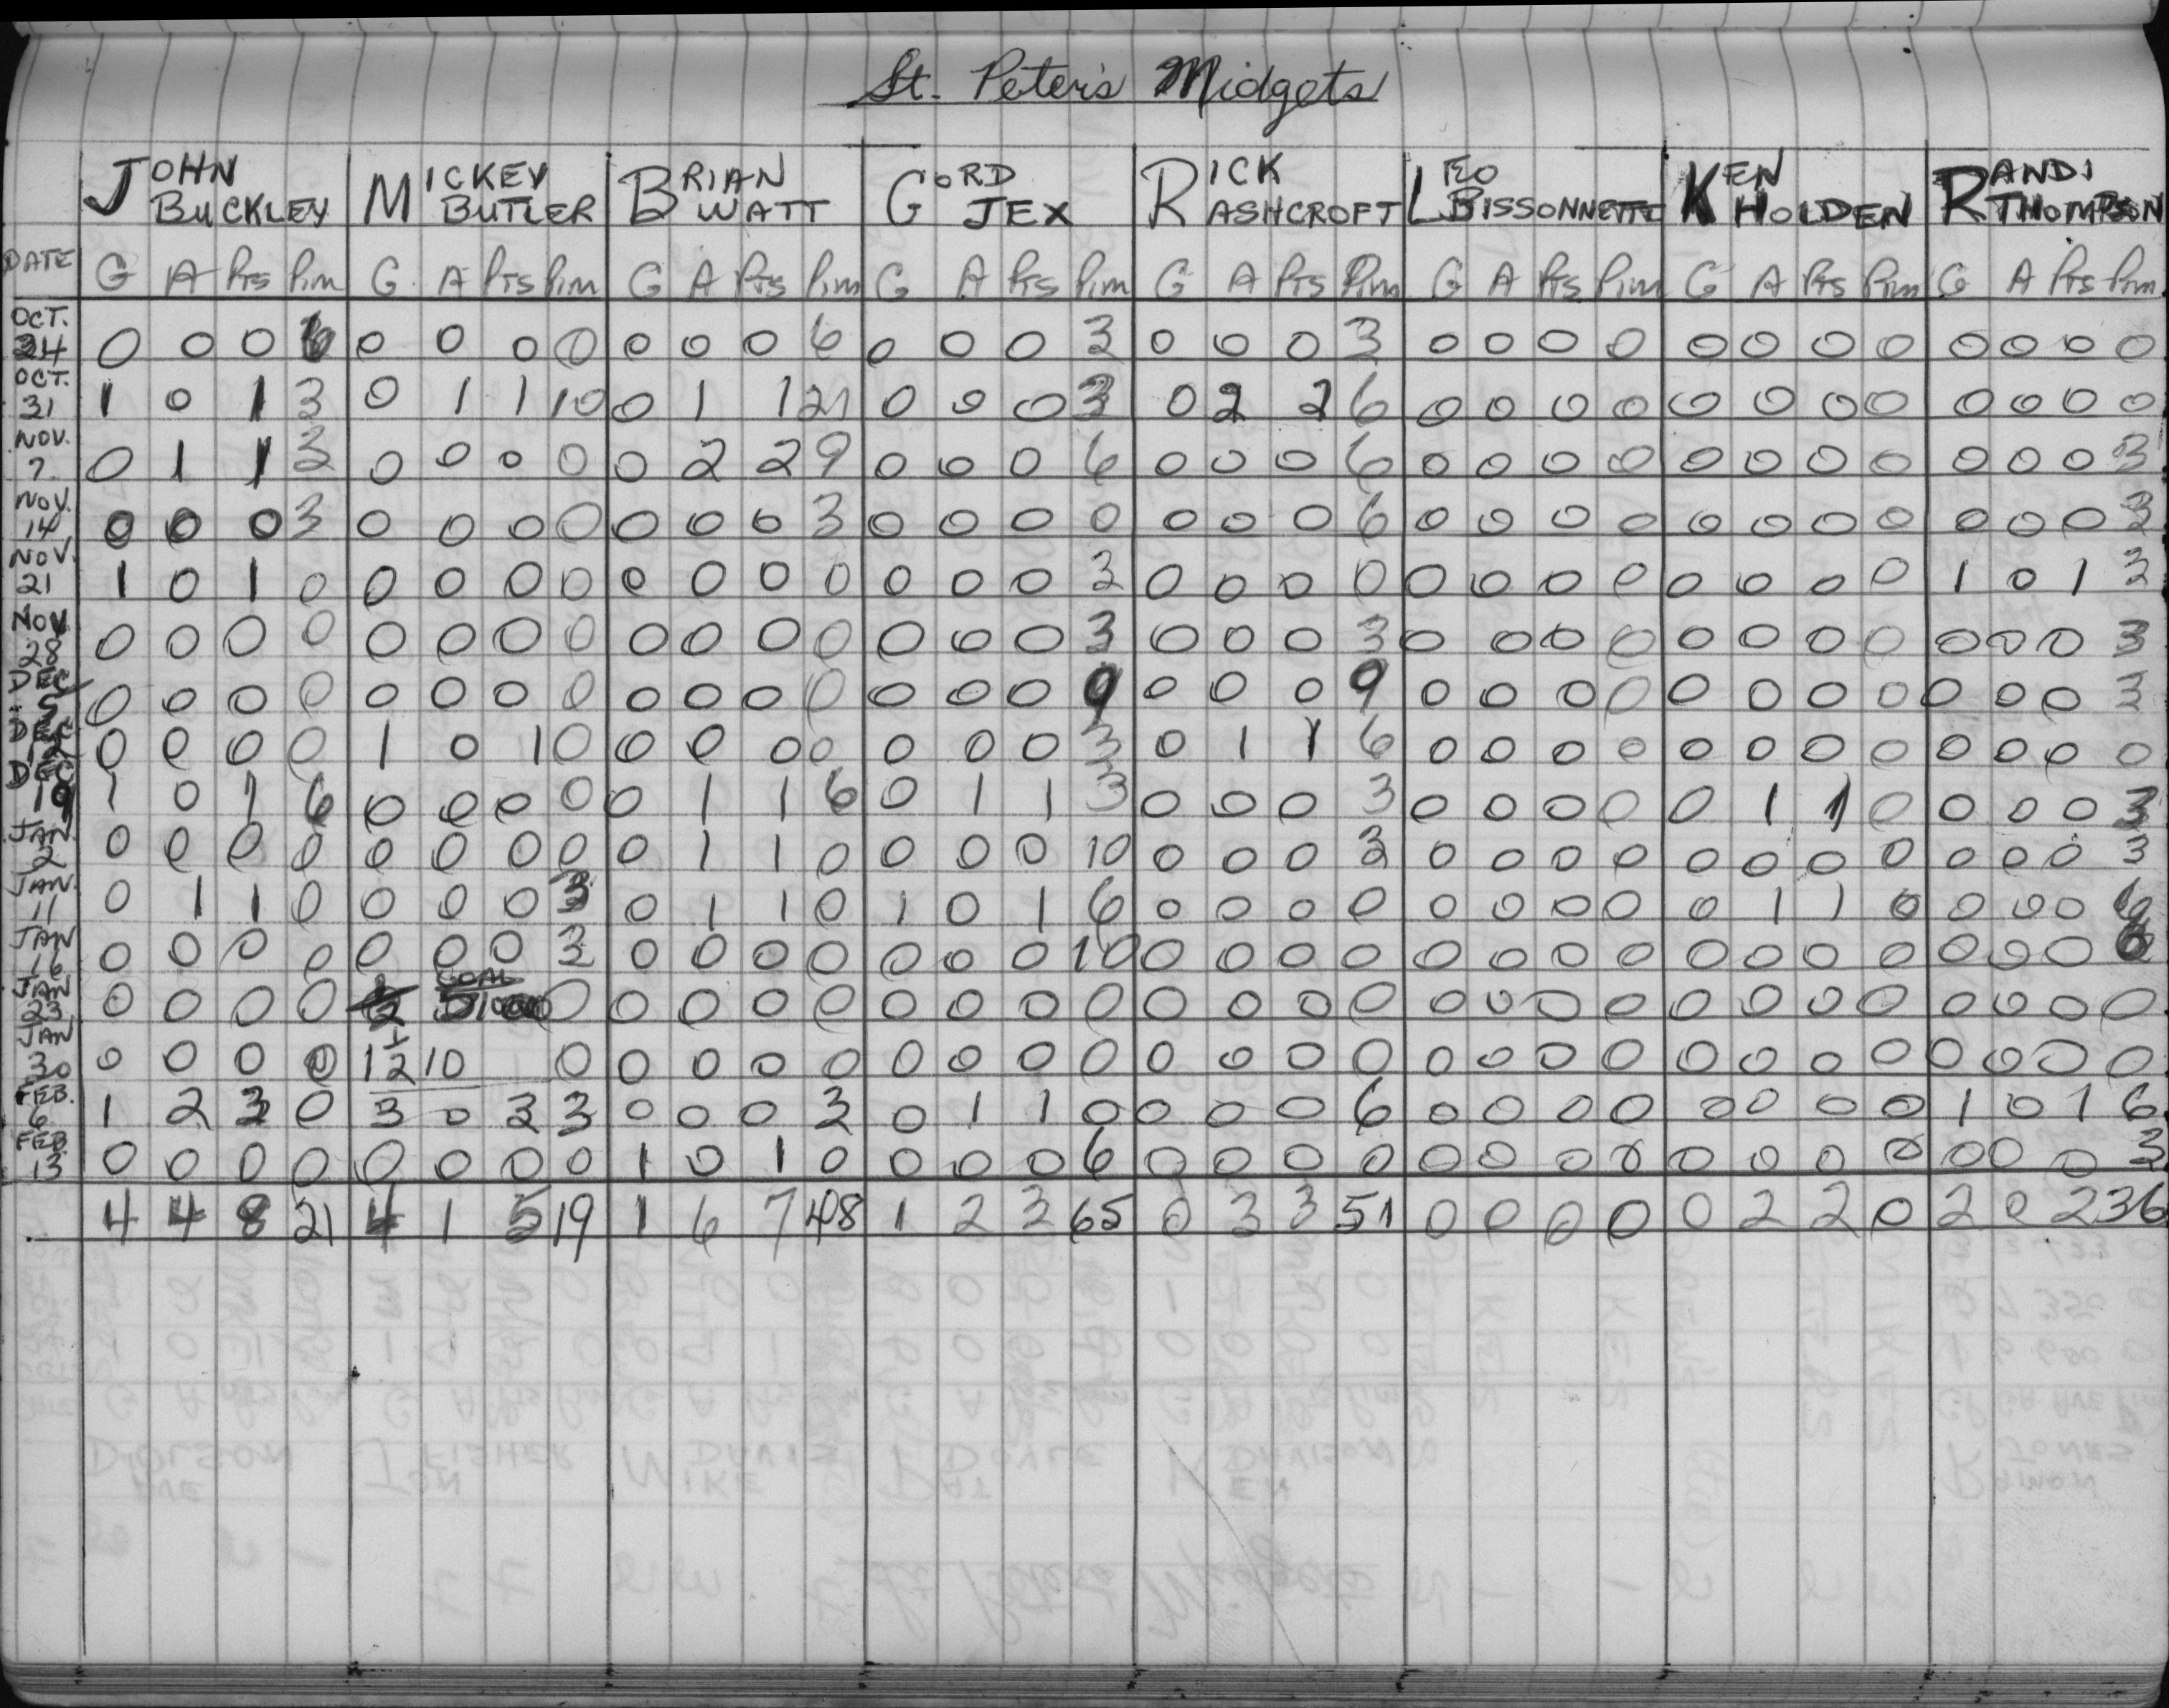 St. Peter's Midgets
JOHN BUCKLEY MICKEY BUTLER BRIAN WATT GORD JEX RICK ASHCROFT LEO BISSONNETTE KEN HOLDEN RANDI THOMPSON
DATE G A Pts Pim G A Pts Pim G A Pts Pim G A Pts Pim G A Pts Pim G A Pts Pim G A Pts Pim G A Pts Pim
OCT. 24 0 0 0 6 0 0 0 0 0 0 0 6 0 0 0 3 0 0 0 3 0 0 0 0 0 0 0 0 0 0 0 0
OCT. 31 1 0 1 3 0 1 1 10 0 1 1 21 0 0 0 3 0 2 2 6 0 0 0 0 0 0 0 0 0 0 0 0
NOV. 7 0 1 1 3 0 0 0 0 0 2 2 9 0 0 0 6 0 0 0 6 0 0 0 0 0 0 0 0 0 0 0 3
NOV. 14 0 0 0 3 0 0 0 0 0 0 0 3 0 0 0 0 0 0 0 6 0 0 0 0 0 0 0 0 0 0 0 3
NOV. 21 1 0 1 0 0 0 0 0 0 0 0 0 0 0 0 3 0 0 0 0 0 0 0 0 0 0 0 0 1 0 1 3
NOV. 28 0 0 0 0 0 0 0 0 0 0 0 0 0 0 0 3 0 0 0 3 0 0 0 0 0 0 0 0 0 0 0 3
DEC 5 0 0 0 0 0 0 0 0 0 0 0 0 0 0 0 9 0 0 0 9 0 0 0 0 0 0 0 0 0 0 0 3
DEC 12 0 0 0 0 1 0 1 0 0 0 0 0 0 0 0 3 0 1 1 6 0 0 0 0 0 0 0 0 0 0 0 0
DEC 19 1 0 1 6 0 0 0 0 0 1 1 6 0 1 1 3 0 0 0 3 0 0 0 0 0 1 1 0 0 0 0 3
JAN. 2 0 0 0 0 0 0 0 0 0 1 1 0 0 0 0 10 0 0 0 3 0 0 0 0 0 0 0 0 0 0 0 3
JAN. 11 0 1 1 0 0 0 0 3 0 1 1 0 1 0 1 6 0 0 0 0 0 0 0 0 0 1 1 0 0 0 0
JAN 16 0 0 0 0 0 0 0 3 0 0 0 0 0 0 0 10 0 0 0 0 0 0 0 0 0 0 0 0 0 0 0 6
JAN 23 0 0 0 0 0 0 0 0 0 0 0 0 0 0 0 0 0 0 0 0 0 0 0 0 0 0 0 0 0
JAN 30 0 0 0 0 1 2 10 0 0 0 0 0 0 0 0 0 0 0 0 0 0 0 0 0 0 0 0 0 0 0 0 0
FEB. 6 1 2 3 0 3 0 3 3 0 0 0 3 0 1 1 0 0 0 0 6 0 0 0 0 0 0 0 0 1 0 1 6
FEB. 13 0 0 0 0 0 0 0 0 1 0 1 0 0 0 0 6 0 0 0 0 0 0 0 0 0 0 0 0 0 0 0 3
4 4 8 21 4 1 5 19 1 6 7 48 1 2 3 65 0 3 3 51 0 0 0 0 0 2 2 0 2 0 2 36